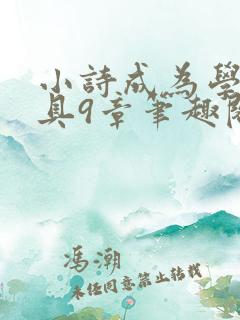 小詩成為學
具9章筆趣閣
馮潮
未經同意禁止轉載